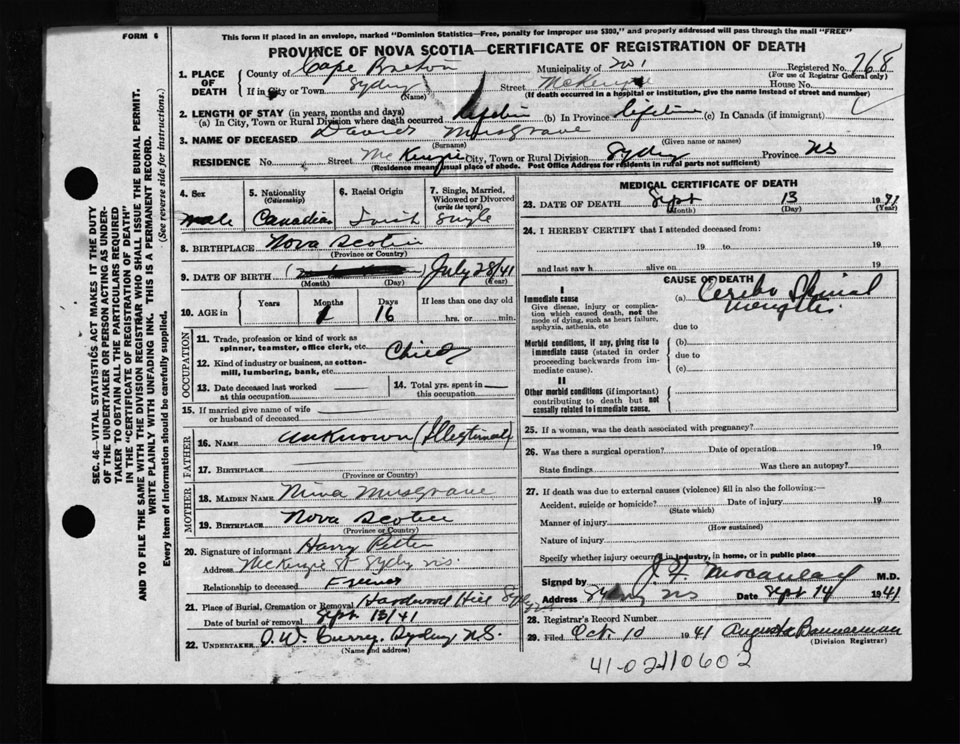 FORM 6
This form if placed in an envelope, marked "Dominion Statistics—Free, penalty for improper use $300," and properly addressed will pass through the mail "FREE"
PROVINCE OF NOVA SCOTIA—CERTIFICATE OF REGISTRATION OF DEATH
1. PLACE OF DEATH
County of Cape Breton Municipality of 201 Registered No. 768
(For use of Registrar General only)
If in City or Town Sydney (Name) Street McKenzie House No.
(If death occurred in a hospital or institution, give the name instead of street and number)
2. LENGTH OF STAY (in years, months and days)
(a) In City, Town or Rural Division where death occurred lifetime (b) In Province lifetime (c) In Canada (if immigrant)
3. NAME OF DECEASED David Musgrave
(Surname) (Given name or names)
RESIDENCE No. Street McKenzie City, Town or Rural Division Sydney Province NS
(Residence means usual place of abode. Post Office Address for residents in rural parts not sufficient)
4. Sex male
5. Nationality (Citizenship) Canadian
6. Racial Origin
7. Single, Married, Widowed or Divorced (write the word) Single
8. BIRTHPLACE Nova Scotia
(Province or Country)
9. DATE OF BIRTH July 28/41
(Month) (Day) (Year)
10. AGE Years Months 1 Days 16 If less than one day old hrs. or min.
OCCUPATION
11. Trade, profession or kind of work as spinner, teamster, office clerk, etc.
12. Kind of industry or business, as cotton-mill, lumbering, bank, etc. Child
13. Date deceased last worked at this occupation
14. Total yrs. spent in this occupation
15. If married give name of wife or husband of deceased
FATHER
16. NAME unknown (Illegitimate)
17. BIRTHPLACE
(Province or Country)
MOTHER
18. MAIDEN NAME Nina Musgrave
19. BIRTHPLACE Nova Scotia
(Province or Country)
20. Signature of informant Harry
Address McKenzie St Sydney N.S.
Relationship to deceased Friend
21. Place of Burial, Cremation or Removal Hardwood Hill Sydney
Date of burial or removal Sept 13/41
22. UNDERTAKER O.W. Curry, Sydney N.S.
(Name and address)
MEDICAL CERTIFICATE OF DEATH
23. DATE OF DEATH Sept 13 1941
(Month) (Day) (Year)
24. I HEREBY CERTIFY that I attended deceased from:
19 to 19
and last saw h alive on 19
CAUSE OF DEATH
I
Immediate cause
Give disease, injury or complication which caused death, not the mode of dying, such as heart failure, asphyxia, asthenia, etc
(a) Cerebro Spinal
due to
Morbid conditions, if any, giving rise to immediate cause (stated in order proceeding backwards from immediate cause).
(b)
due to
(c)
II
Other morbid conditions (if important) contributing to death but not causally related to immediate cause.
25. If a woman, was the death associated with pregnancy?
26. Was there a surgical operation? Date of operation 19
State findings Was there an autopsy?
27. If death was due to external causes (violence) fill in also the following:—
Accident, suicide or homicide? Date of injury 19
(State which)
Manner of injury
(How sustained)
Nature of injury
Specify whether injury occurred in industry, in home, or in public place
Signed by M.D.
Address Sydney NS Date Sept 14 1941
28. Registrar's Record Number
29. Filed Oct 10 1941 Augusta Bannerman
(Division Registrar)
41-02110602
SEC. 46—VITAL STATISTICS ACT MAKES IT THE DUTY OF THE UNDERTAKER OR PERSON ACTING AS UNDERTAKER TO OBTAIN ALL THE PARTICULARS REQUIRED IN THE "CERTIFICATE OF REGISTRATION OF DEATH" AND TO FILE THE SAME WITH THE DIVISION REGISTRAR WHO SHALL ISSUE THE BURIAL PERMIT.
WRITE PLAINLY WITH UNFADING INK. THIS IS A PERMANENT RECORD.
Every item of Information should be carefully supplied. (See reverse side for instructions.)